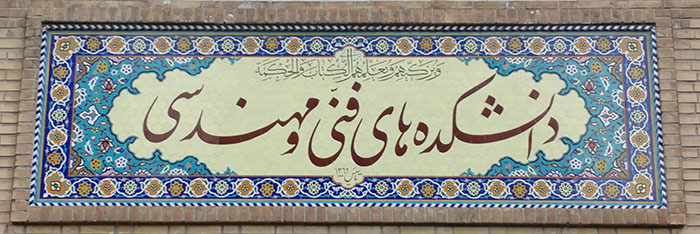 وَيُزَكِّيهِمْ وَيُعَلِّمُهُمُ الْكِتَابَ وَالْحِكْمَةَ
دانشکده های فنّی و مهندسی